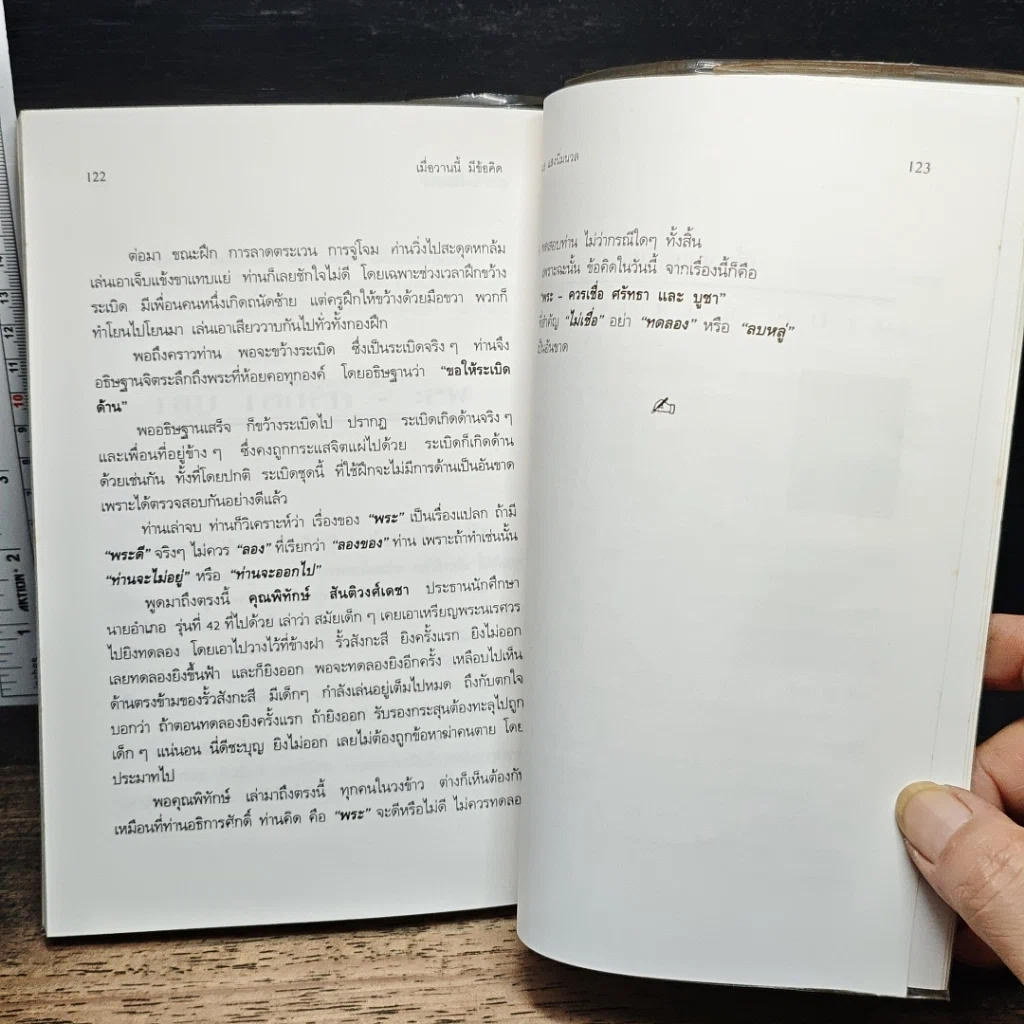 122
เมื่อวานนี้ มีข้อคิด
ต่อมา ขณะฝึก การลาดตระเวน การจู่โจม ท่านวิ่งไปสะดุดหกล้ม
เล่นเอาเจ็บแข้งขาแทบแย่ ท่านก็เลยชักใจไม่ดี โดยเฉพาะช่วงเวลาฝึกขว้าง
ระเบิด มีเพื่อนคนหนึ่งเกิดถนัดซ้าย แต่ครูฝึกให้ขว้างด้วยมือขวา พวกก็
ทำโยนไปโยนมา เล่นเอาเสียววาบกันไปทั่วทั้งกองฝึก
พอถึงคราวท่าน พอจะขว้างระเบิด ซึ่งเป็นระเบิดจริง ๆ ท่านจึง
อธิษฐานจิตระลึกถึงพระที่ห้อยคอทุกองค์ โดยอธิษฐานว่า "ขอให้ระเบิด
ด้าน"
พออธิษฐานเสร็จ ก็ขว้างระเบิดไป ปรากฏ ระเบิดเกิดด้านจริง ๆ
และเพื่อนที่อยู่ข้าง ๆ ซึ่งคงถูกกระแสจิตแผ่ไปด้วย ระเบิดก็เกิดด้าน
ด้วยเช่นกัน ทั้งที่โดยปกติ ระเบิดชุดนี้ ที่ใช้ฝึกจะไม่มีการด้านเป็นอันขาด
เพราะได้ตรวจสอบกันอย่างดีแล้ว
ท่านเล่าจบ ท่านก็วิเคราะห์ว่า เรื่องของ "พระ" เป็นเรื่องแปลก ถ้ามี
"พระดี" จริงๆ ไม่ควร "ลอง" ที่เรียกว่า "ลองของ" ท่าน เพราะถ้าทำเช่นนั้น
"ท่านจะไม่อยู่" หรือ "ท่านจะออกไป"
พูดมาถึงตรงนี้ คุณพิทักษ์ สันติวงศ์เดชา ประธานนักศึกษา
นายอำเภอ รุ่นที่ 42 ที่ไปด้วย เล่าว่า สมัยเด็ก ๆ เคยเอาเหรียญพระนเรศวร
ไปยิงทดลอง โดยเอาไปวางไว้ที่ข้างฝา รั้วสังกะสี ยิงครั้งแรก ยิงไม่ออก
เลยทดลองยิงขึ้นฟ้า และก็ยิงออก พอจะทดลองยิงอีกครั้ง เหลือบไปเห็น
ด้านตรงข้ามของรั้วสังกะสี มีเด็กๆ กำลังเล่นอยู่เต็มไปหมด ถึงกับตกใจ
บอกว่า ถ้าตอนทดลองยิงครั้งแรก ถ้ายิงออก รับรองกระสุนต้องทะลุไปถูก
เด็ก ๆ แน่นอน นี่ดีซะบุญ ยิงไม่ออก เลยไม่ต้องถูกข้อหาฆ่าคนตาย โดย
ประมาทไป
พอคุณพิทักษ์ เล่ามาถึงตรงนี้ ทุกคนในวงข้าว ต่างก็เห็นต้องกับ
เหมือนที่ท่านอธิการศักดิ์ ท่านคิด คือ "พระ" จะดีหรือไม่ดี ไม่ควรทดลอ
แสงนิ่มนวล
123
ท่าน ไม่ว่ากรณีใดๆ ทั้งสิ้น
เพราะฉะนั้น ข้อคิดในวันนี้ จากเรื่องนี้ก็คือ
"พระ - ควรเชื่อ ศรัทธา และ บูชา"
ที่สำคัญ "ไม่เชื่อ" อย่า "ทดลอง" หรือ "ลบหลู่"
เป็นอันขาด
ACTION
1
2
3
10
11
12
13
14